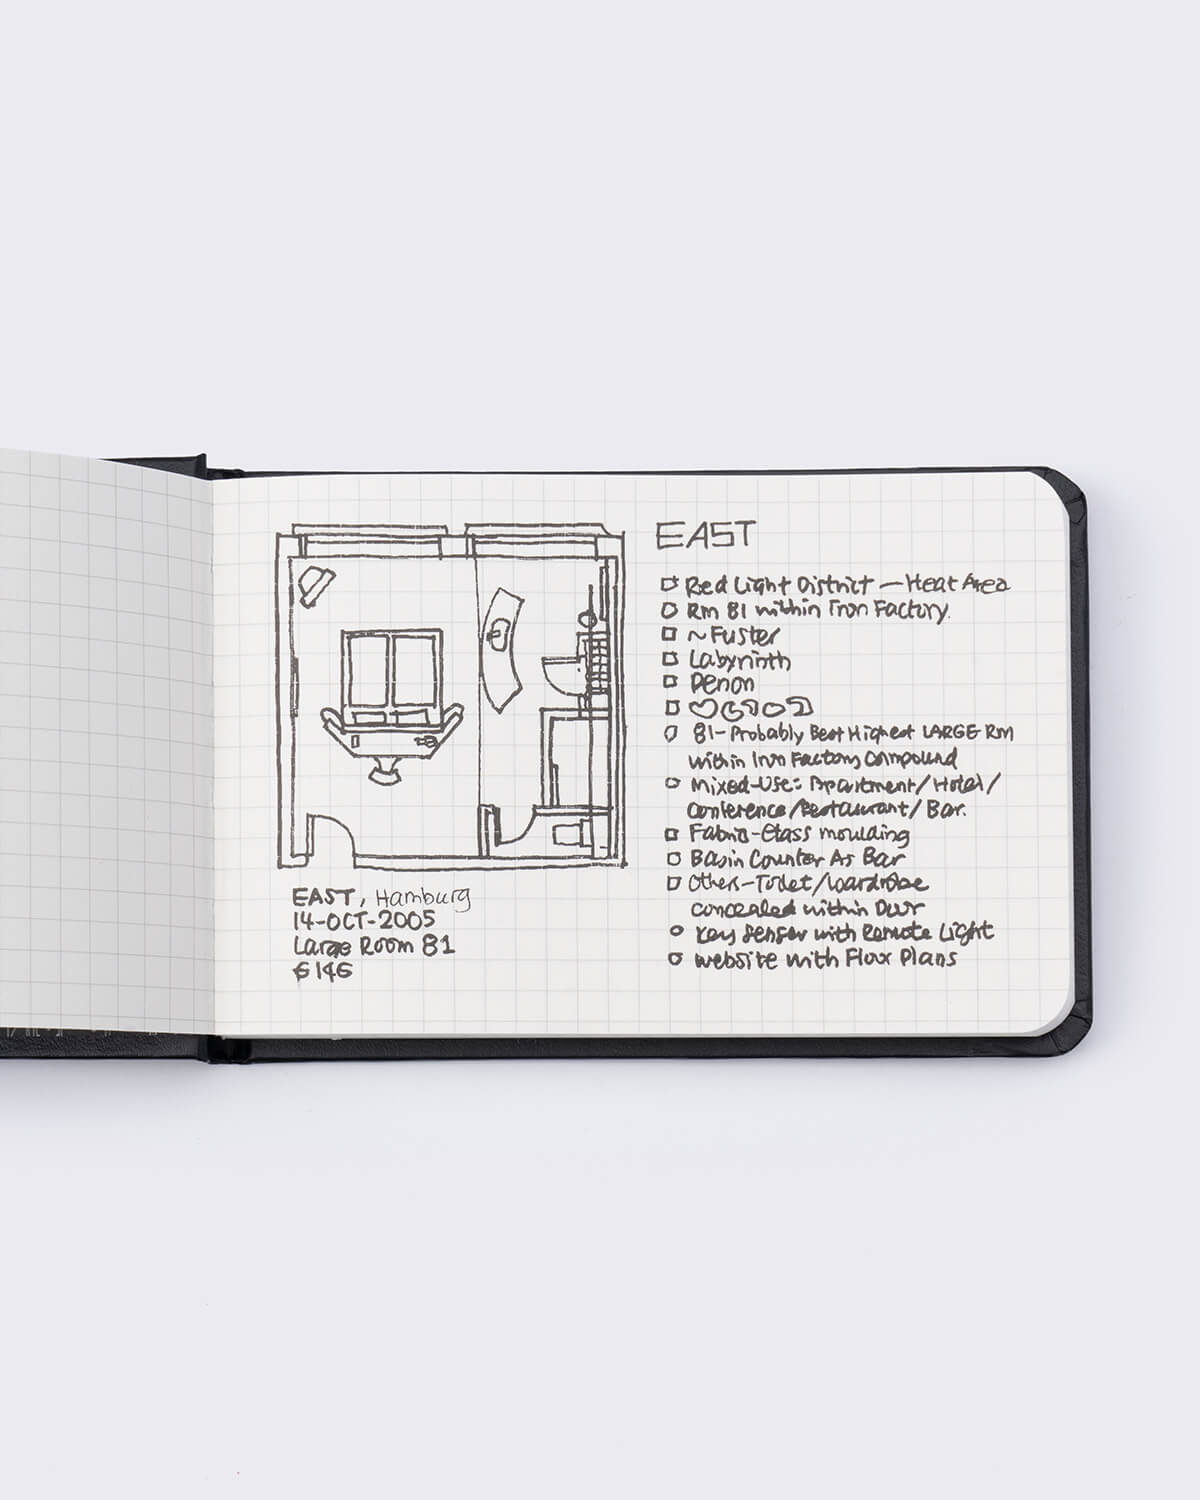 EAST, Hamburg
14-OCT-2005
Large Room 81
EAST
Red Light District — Heat Area
Rm 81 within Iron Factory.
~Fuster
Labyrinth
Denon
81-Probably Best Highest LARGE Rm
within Iron Factory Compound
Mixed-Use: Apartment/Hotel/
Conference/Restaurant/Bar.
Fabric-Glass moulding
Basin Counter As Bar
Others-Toilet/Wardrobe
concealed within Door
Key Sensor with Remote Light
Website with Floor Plans